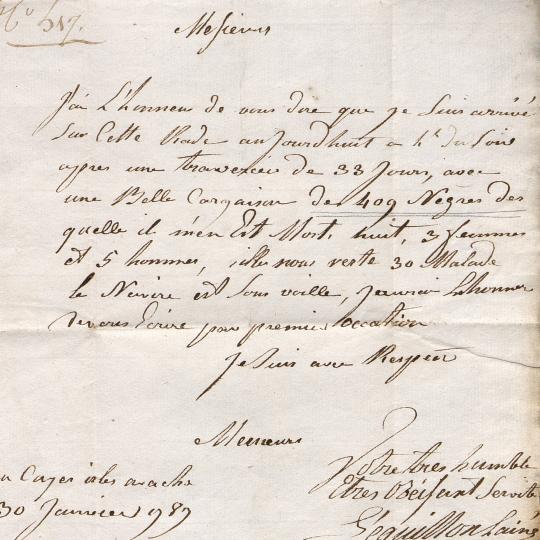 N° 517.
Messieurs
J'ai L'honneur de vous dire que je suis arrivé
Sur Cette Rade aujourdhuit a 4h du Soir
apres une traversée de 33 Jours, avec
une Belle Cargaison de 409 Négres des
quelle il m'en Est Mort huit, 3 femmes
et 5 hommes, il nous reste 30 Malade
le Navire est Sous voille, J'aurai L'honneur
de vous Ecrire par premier occation
Je Suis avec Respect
Messieurs
Votre tres humble
Et tres Obéisant Servite
Cayes
30 Janvier 1789
L'ainé